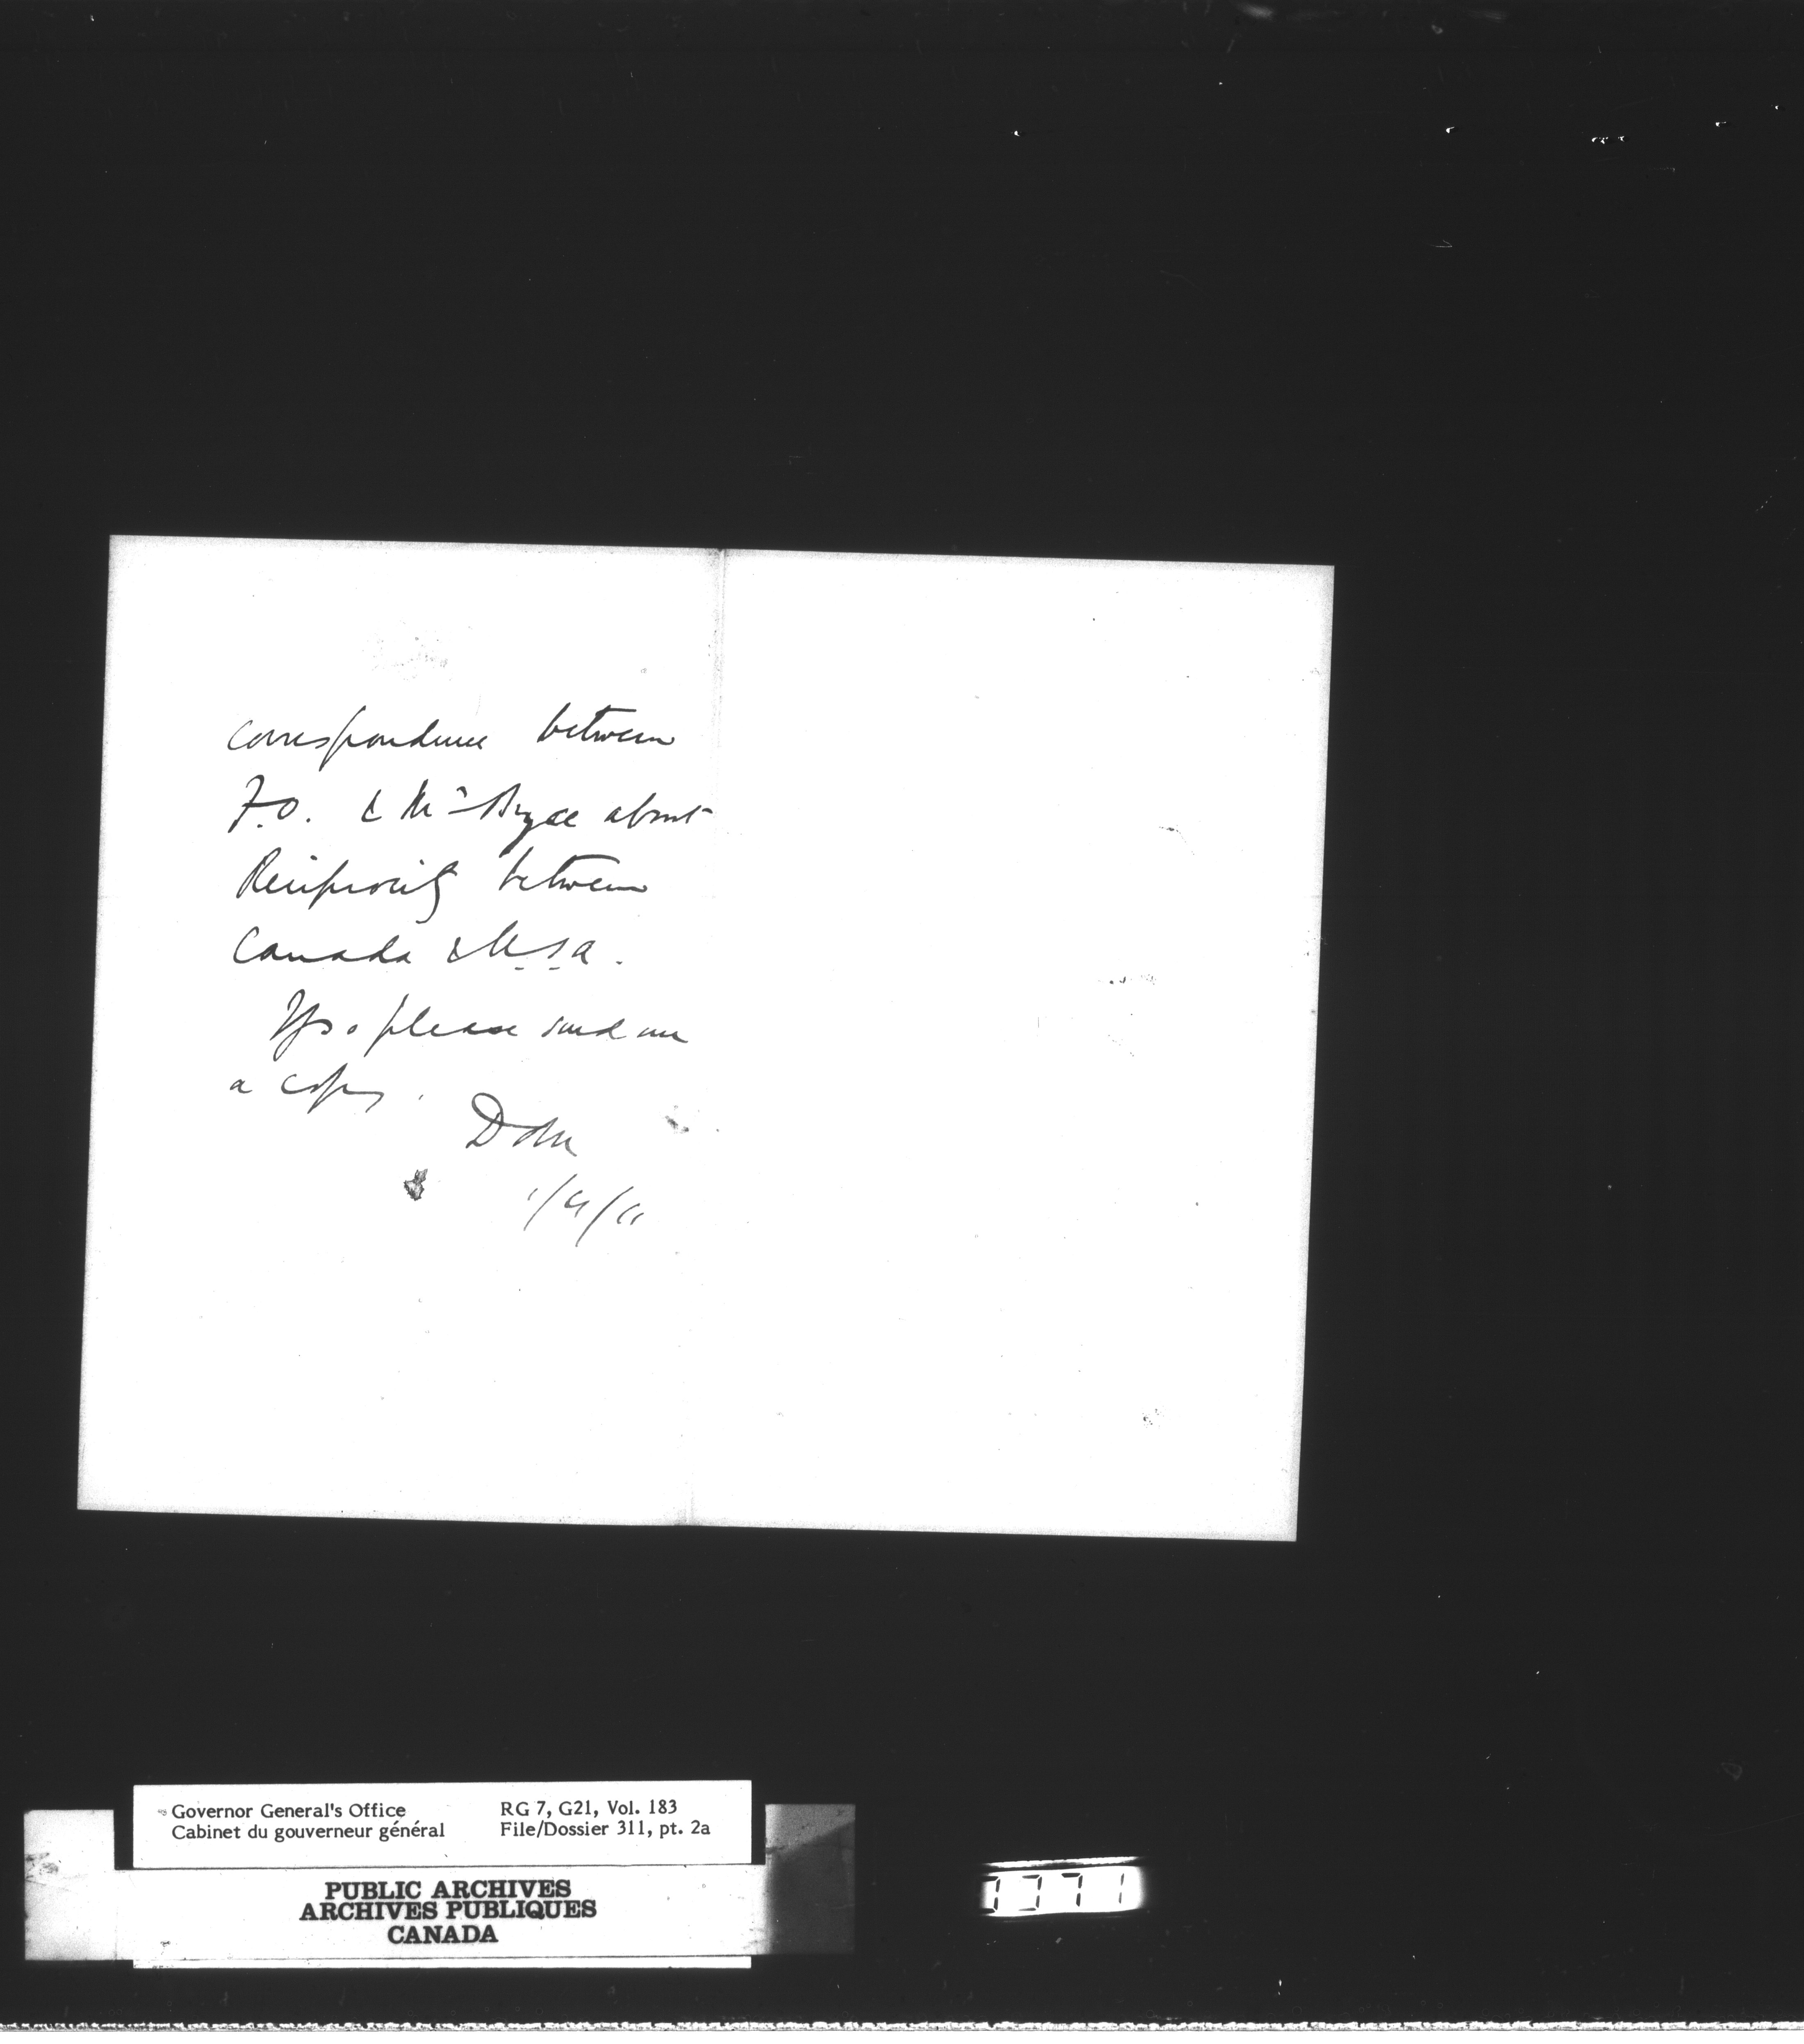 correspondence between
F.O. & Mr Bryce about
Reciprocity between
Canada & USA.
If so please send me
a copy.
DOM
1/4/11
Governor General's Office
Cabinet du gouverneur général
RG 7, G21, Vol. 183
File/Dossier 311, pt. 2a
PUBLIC ARCHIVES
ARCHIVES PUBLIQUES
CANADA